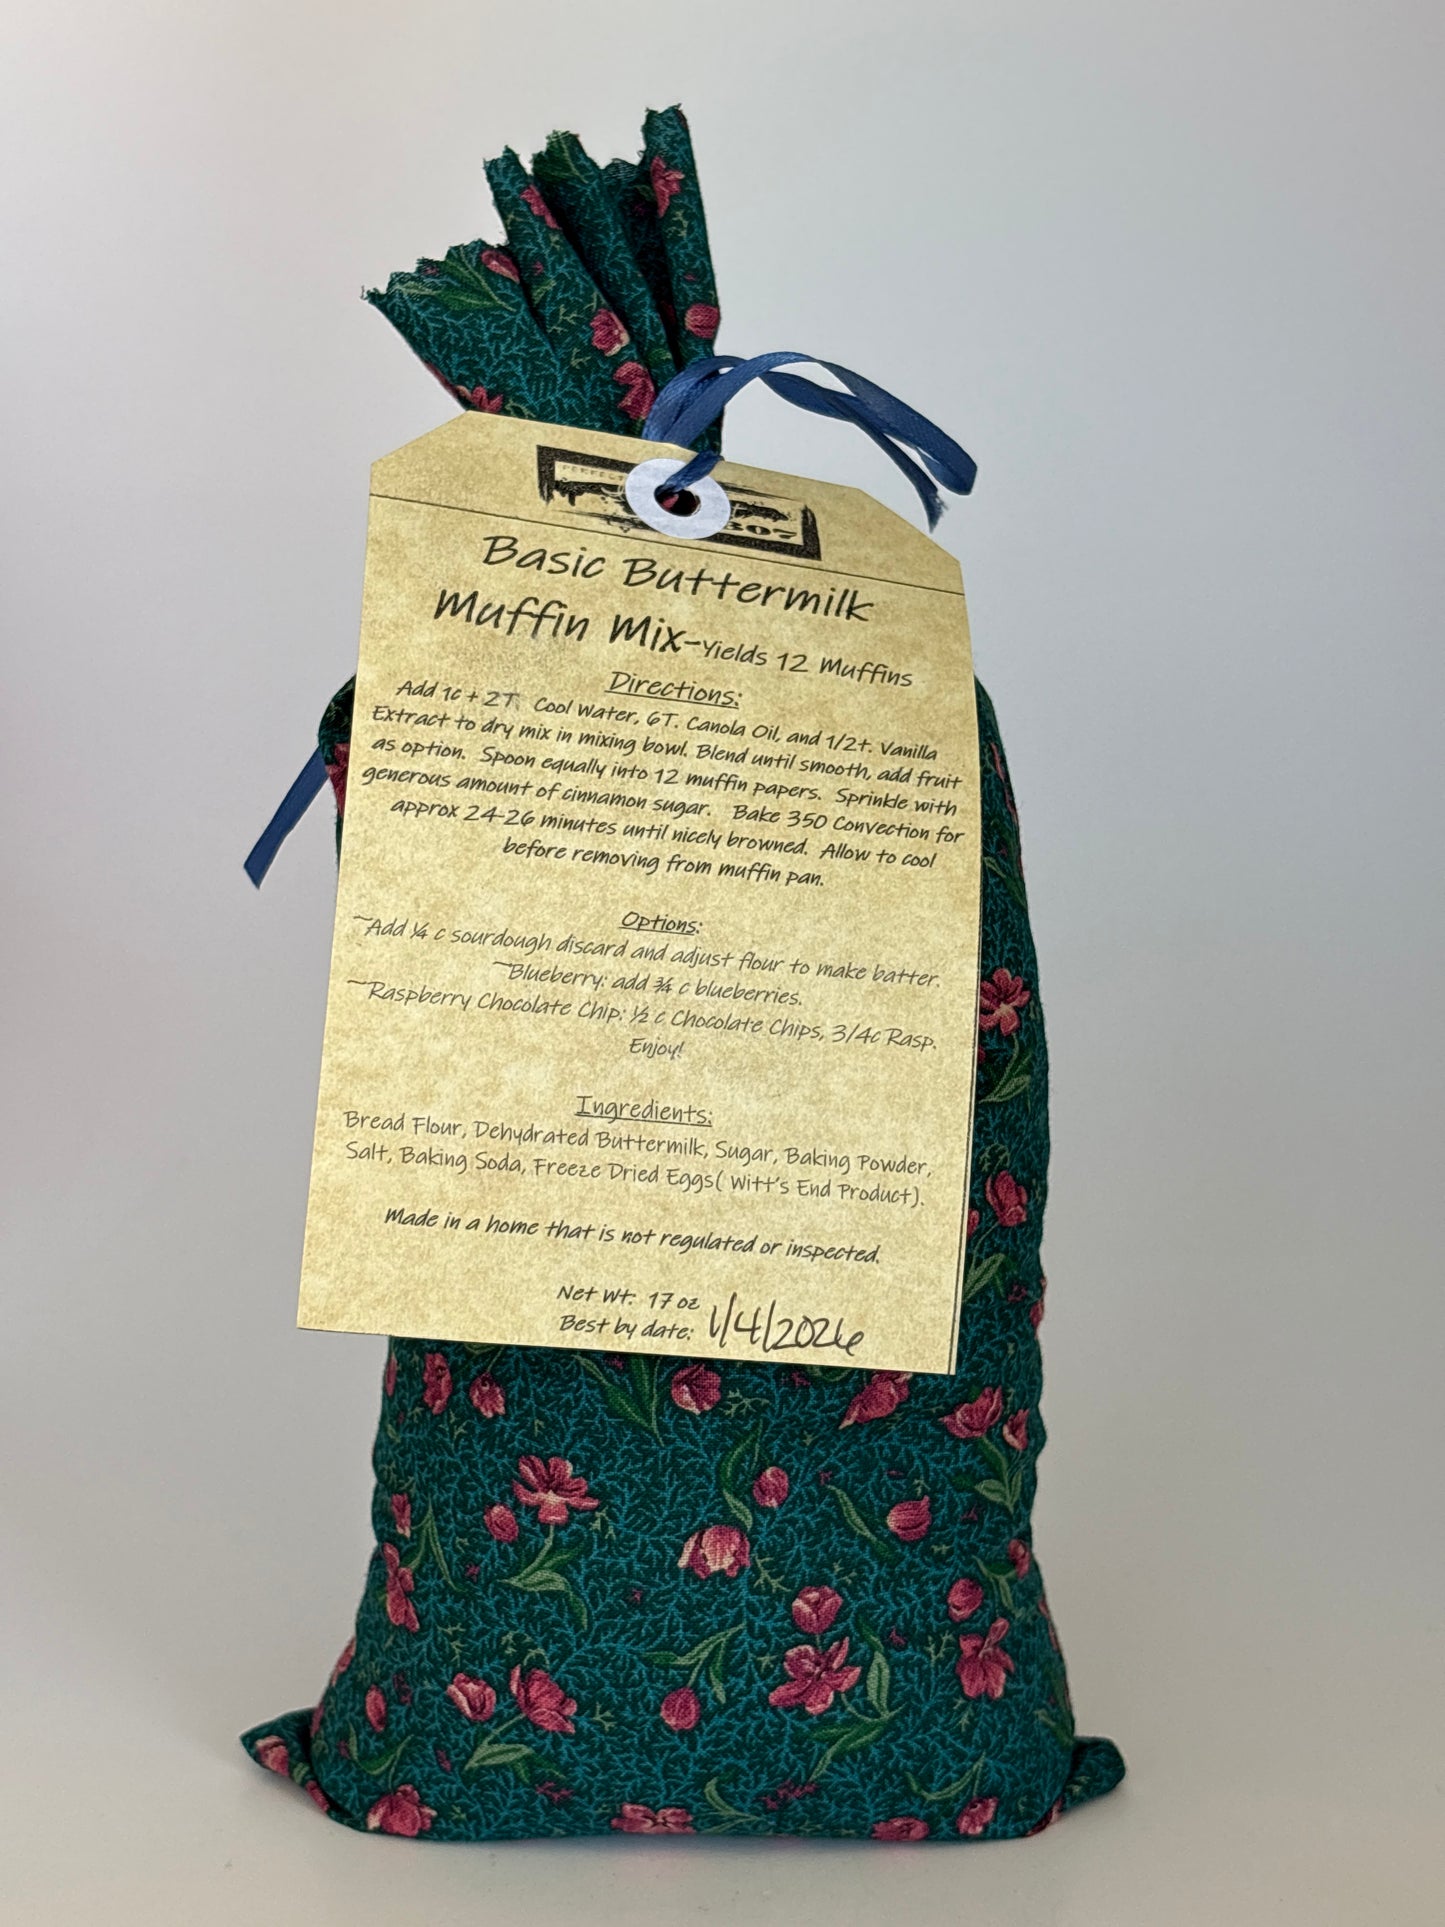 PERFECT
307
Basic Buttermilk
Muffin Mix-Yields 12 Muffins
Directions:
Add 1c + 2T. Cool Water, 6T. Canola Oil, and 1/2t. Vanilla
Extract to dry mix in mixing bowl. Blend until smooth, add fruit
as option. Spoon equally into 12 muffin papers. Sprinkle with
generous amount of cinnamon sugar. Bake 350 Convection for
approx 24-26 minutes until nicely browned. Allow to cool
before removing from muffin pan.
Options:
~Add ¼ c sourdough discard and adjust flour to make batter.
~Blueberry: add ¾ c blueberries.
~Raspberry Chocolate Chip: ½ c Chocolate Chips, 3/4c Rasp.
Enjoy!
Ingredients:
Bread Flour, Dehydrated Buttermilk, Sugar, Baking Powder,
Salt, Baking Soda, Freeze Dried Eggs( Witt's End Product).
Made in a home that is not regulated or inspected.
Net Wt: 17 oz
Best by date: 1/4/2026